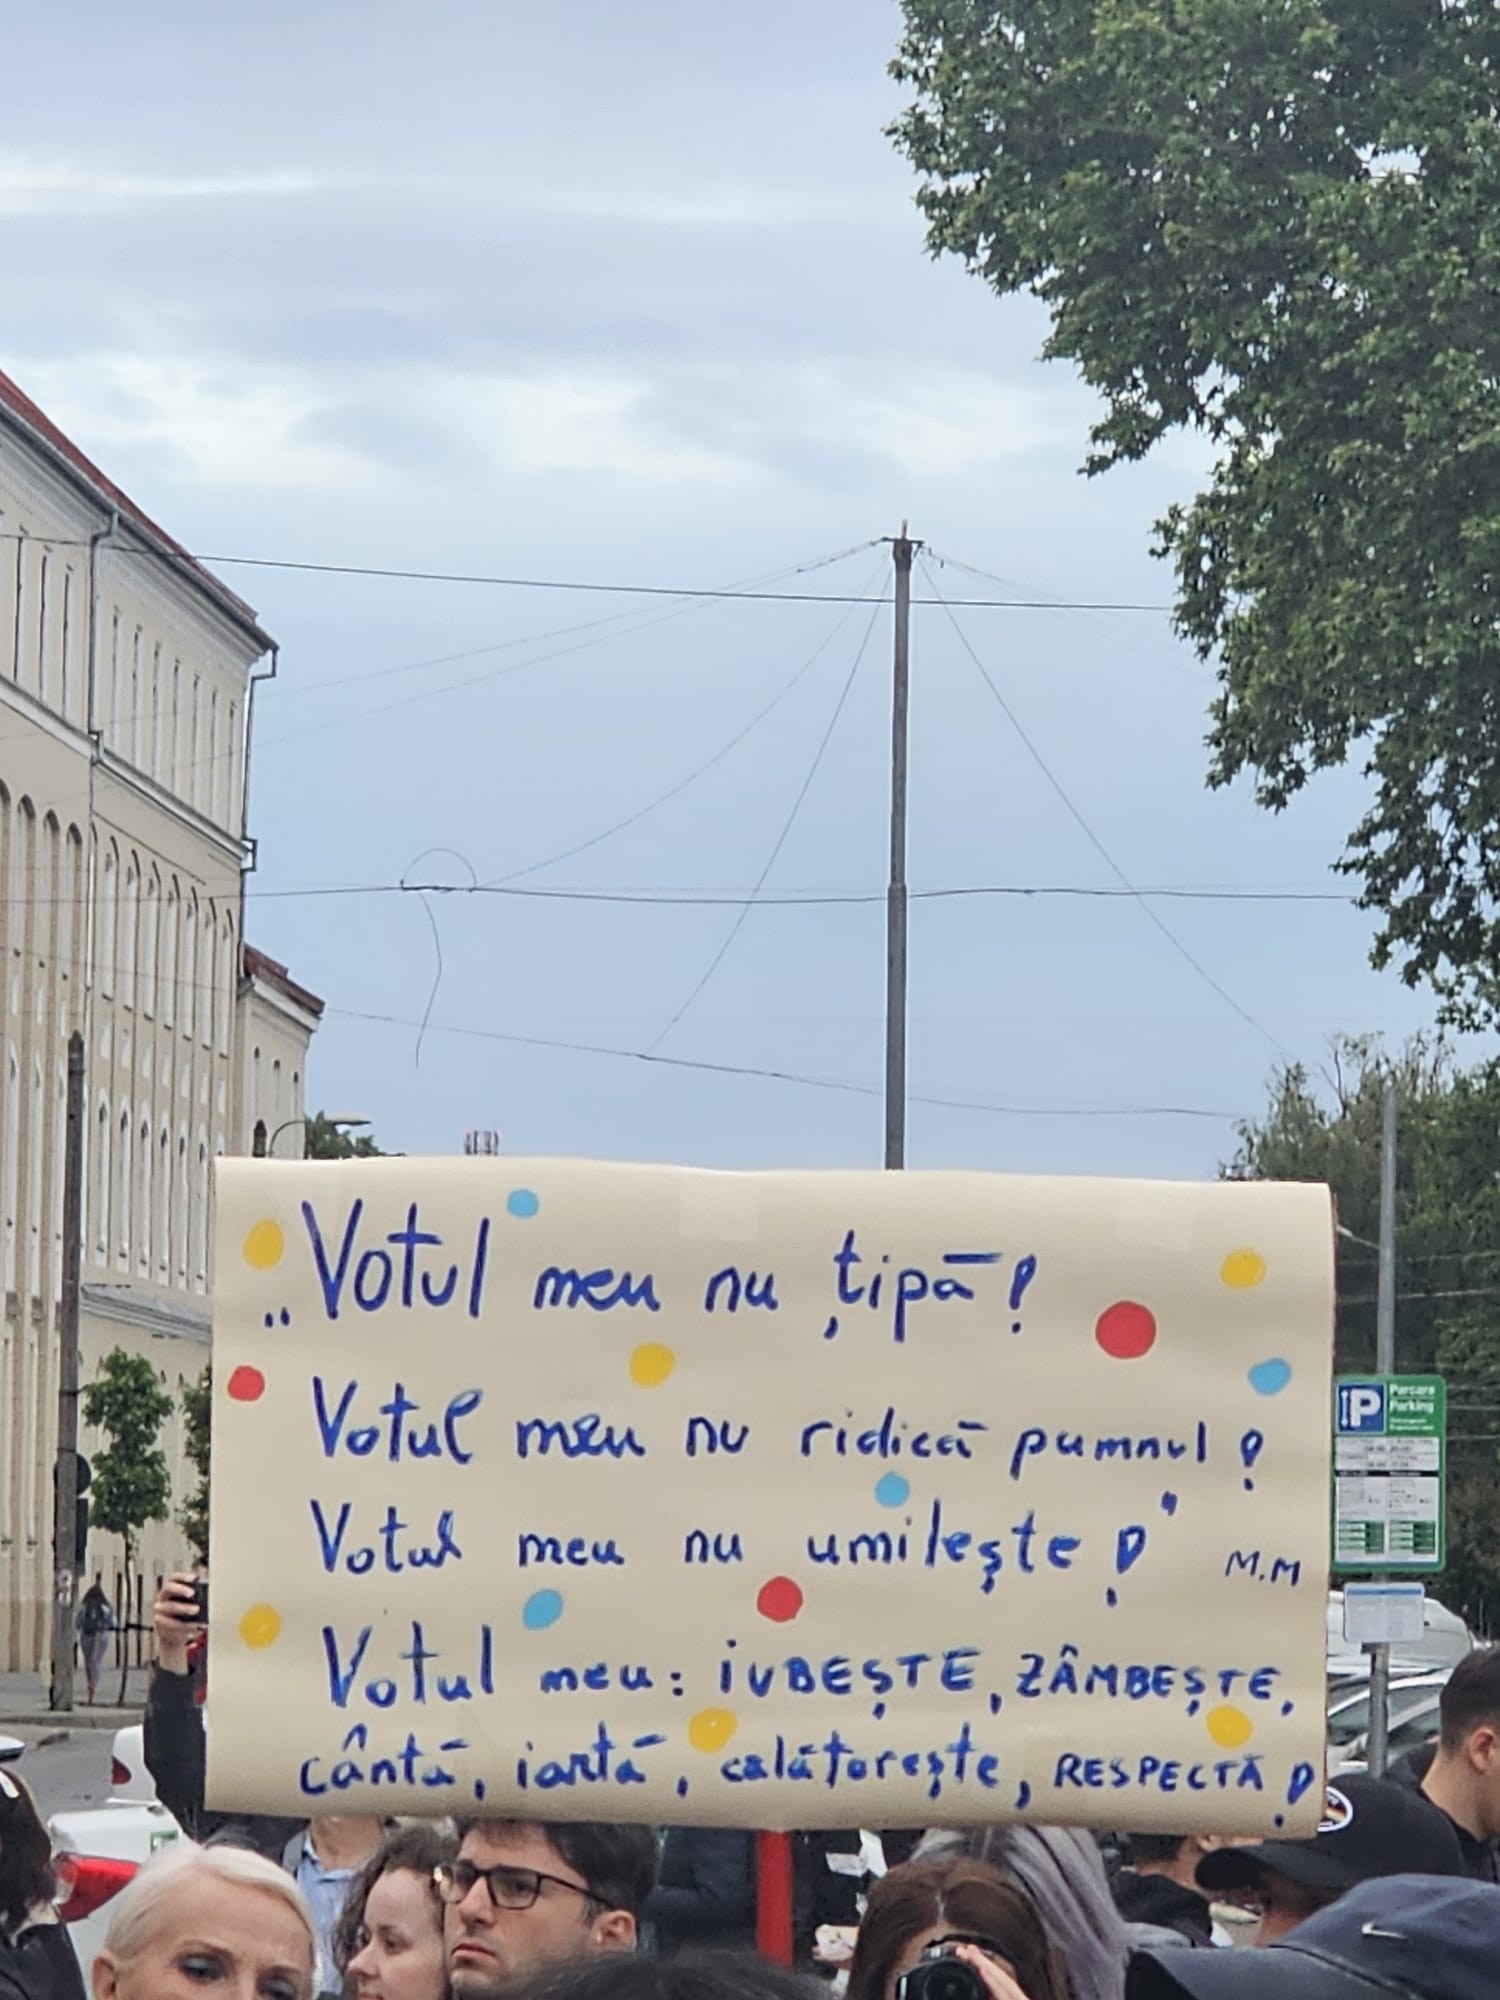 „Votul meu nu țipă!
Votul meu nu ridică pumnul!
Votul meu nu umilește!" M.M
Votul meu: iUBEȘTE, ZÂMBEȘTE,
cântă, iartă, călătorește, RESPECTĂ!
P Parcare
Parking